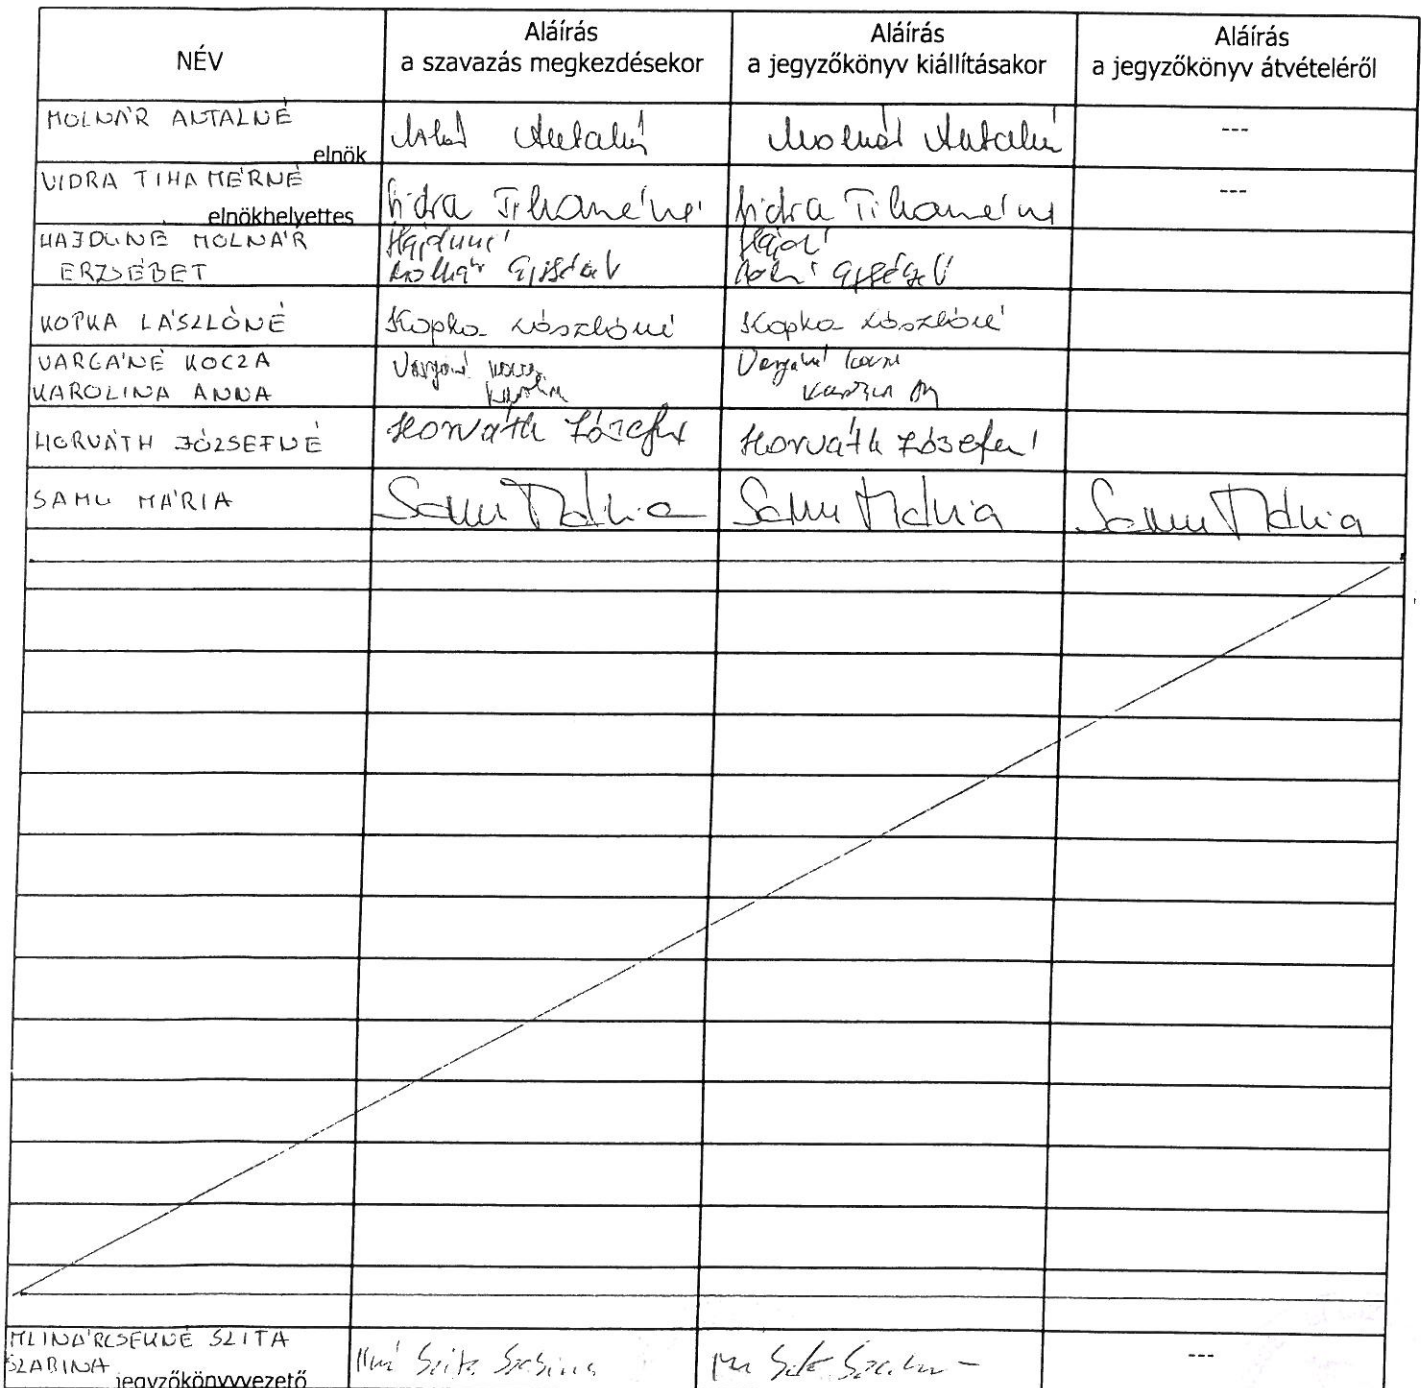 NÉV
Aláírás
a szavazás megkezdésekor
Aláírás
a jegyzőkönyv kiállításakor
Aláírás
a jegyzőkönyv átvételéről
MOLNÁR ANTALNÉ
elnök
Antalné
Molnár Antalné
---
VIDRA TIHAMÉRNÉ
elnökhelyettes
Vidra Tihamérné
Vidra Tihamérné
---
HAJDUNÉ MOLNÁR
ERZSÉBET
Hajduné
Molnár Erzsébet
KOPKA LÁSZLÓNÉ
Kopka Lászlóné
Kopka Lászlóné
VARGÁNÉ KOCZA
KAROLINA ANNA
Vargáné
Karolina
Vargáné
HORVÁTH JÓZSEFNÉ
Horváth Józsefné
Horváth Józsefné
SAMU MÁRIA
Samu Mária
Samu Mária
Samu Mária
MLINÁRCSEKNÉ SZITA
SZABINA
jegyzőkönyvvezető
Szita Szabina
---